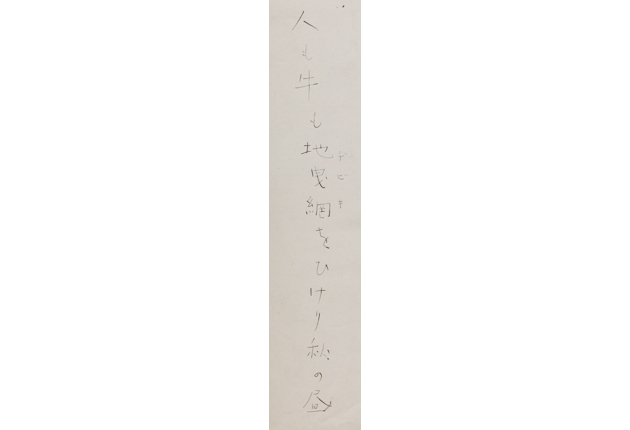 人も牛も地曳網をひけり秋の昼